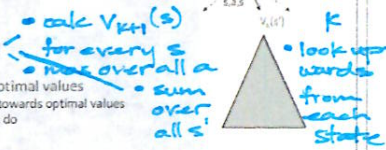 • calc Vk+1(s)
for every s
• max over all a
• sum
over
all s'
ptimal values
towards optimal values
do
s,a,s'
Vk(s')
k
• look up
wards
from
each
state